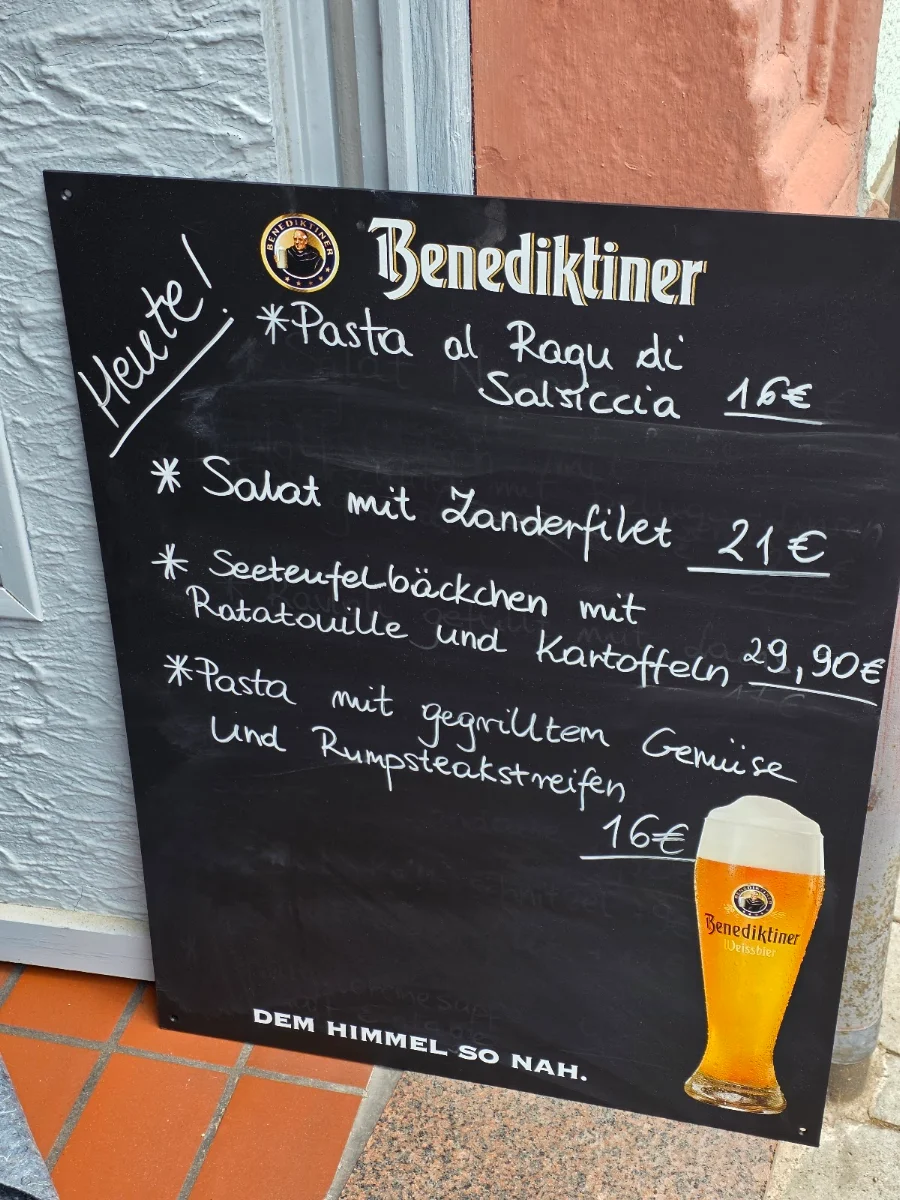 BENEDIKTINER
Benediktiner
Heute!
*Pasta al Ragu di
Salsiccia 16€
* Salat mit Zanderfilet 21€
* Seeteufelbäckchen mit
Ratatouille und Kartoffeln 29,90€
*Pasta mit gegrilltem Gemüse
und Rumpsteakstreifen
16€
Benediktiner
Weissbier
DEM HIMMEL SO NAH.